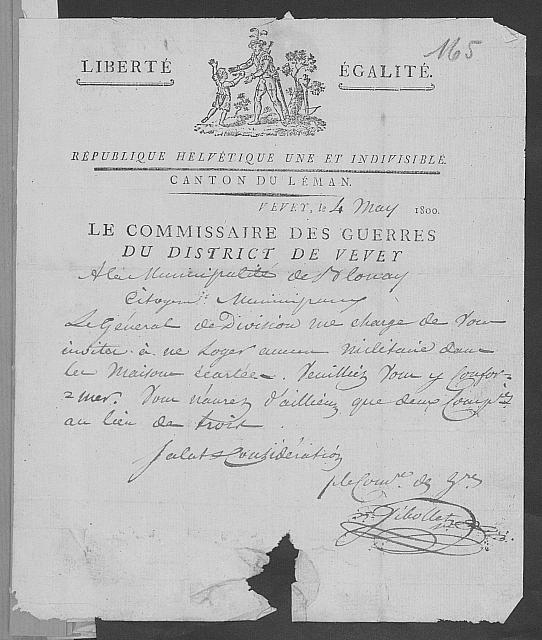 165
LIBERTÉ ÉGALITÉ.
RÉPUBLIQUE HELVÉTIQUE UNE ET INDIVISIBLE.
CANTON DU LÉMAN.
VEVEY, le 4 May 1800.
LE COMMISSAIRE DES GUERRES
DU DISTRICT DE VEVEY
A la Municipalité de Blonay
Citoyens Municipaux
Le Général de Division me charge de vous
inviter à ne Loger aucun militaire dans
les Maisons écartées. Veuilliez vous y Confor-
=mer. Vous n'aurez d'ailleurs que deux Comp.es
au lieu de trois.
Salut & Considération
p le Com.re des G.res